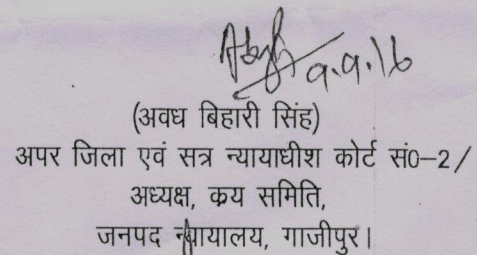 9.9.16
(अवध बिहारी सिंह)
अपर जिला एवं सत्र न्यायाधीश कोर्ट सं0-2/
अध्यक्ष, कय समिति,
जनपद न्यायालय, गाजीपुर।